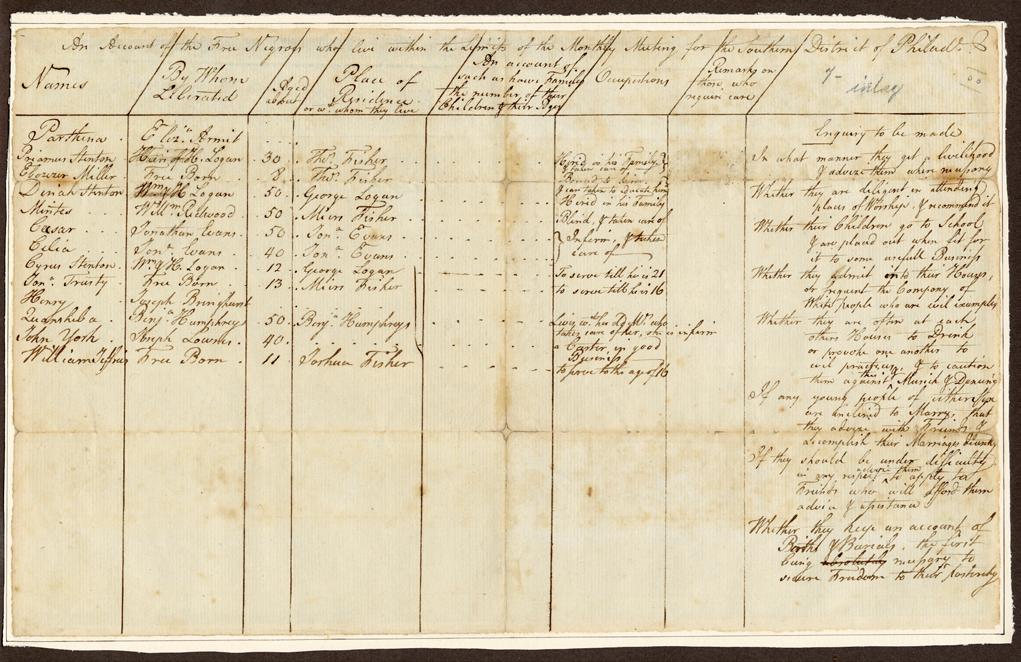 An Account of the Free Negros who live within the Limits of the Monthly Meeting for the Southern District of Philad.
Names
By Whom
Liberated
Aged
about
Place of
Residence
or wth. whom they live
An account of
such as have Families
the number of their
Children & their Ages
Occupations
Remarks on
those, who
require care
inlay
Parthena Eliza. Armit
Priamus Stenton Han & H. Logan 30 Thos. Fisher Hired in his Family &
taken care of
Miller Free Born 8 Thos. Fisher
& care taken to Educate him
Dinah Stenton Wm. & H. Logan 50 George Logan Hired in his Family
Mintes Willm. Redwood 50 Miers Fisher Blind, & taken care of
Cæsar Jonathan Evans 50 Jona. Evans Infirm, & taken
care of
Celia Jona. Evans 40 Jona. Evans
Cyrus Stenton Wm. & H. Logan 12 George Logan To serve till he is 21
Jona. Trusty Free Born 13 Miers Fisher to serve till he is 16
Henry Joseph Bringhurst
Quansheba Benja. Humphreys 50 Benja. Humphreys Lives wth. her Old Mr. who
takes care of her, who is infirm
John York Joseph Lownes 40 a Carter, in good
Business
William Free Born 11 Joshua Fisher to serve to the age of 16
Enquiry to be made
In what manner they get a livelihood
& advise them where necessary
Whether they are deligent in attending
places of Worship, & recommend it
Whether their Children go to School,
& are placed out when fit for
it to some usefull Business
Whether they admit into their Houses,
or frequent the Company of
White people who are evil examples
Whether they are often at each
others Houses to Drink
or provoke one another to
evil practices, & to caution
them against this Musick & Dancing
If any young people of either Sex
are inclined to Marry, that
they advise with Friends &
Accomplish their Marriages
If they should be under difficulty
in any respect advise them to apply to
Friends who will afford them
advice & assistance
Whether they keep an account of
Births & Burials, the first
being absolutely necessary to
secure Freedom to their posterity